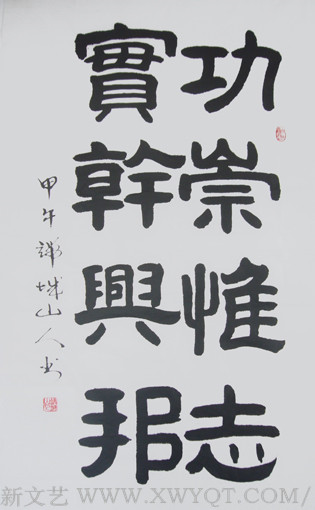 功崇惟志
實幹興邦
甲午 城山人书
新文艺 WWW.XWYQT.COM/